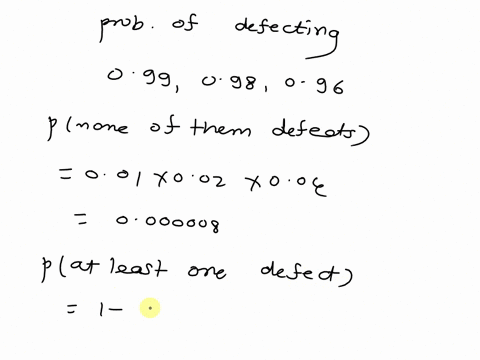 prob. of defecting
0.99, 0.98, 0.96
p(none of them defects)
= 0.01 x 0.02 x 0.04
= 0.000008
p(at least one defect)
= 1- .